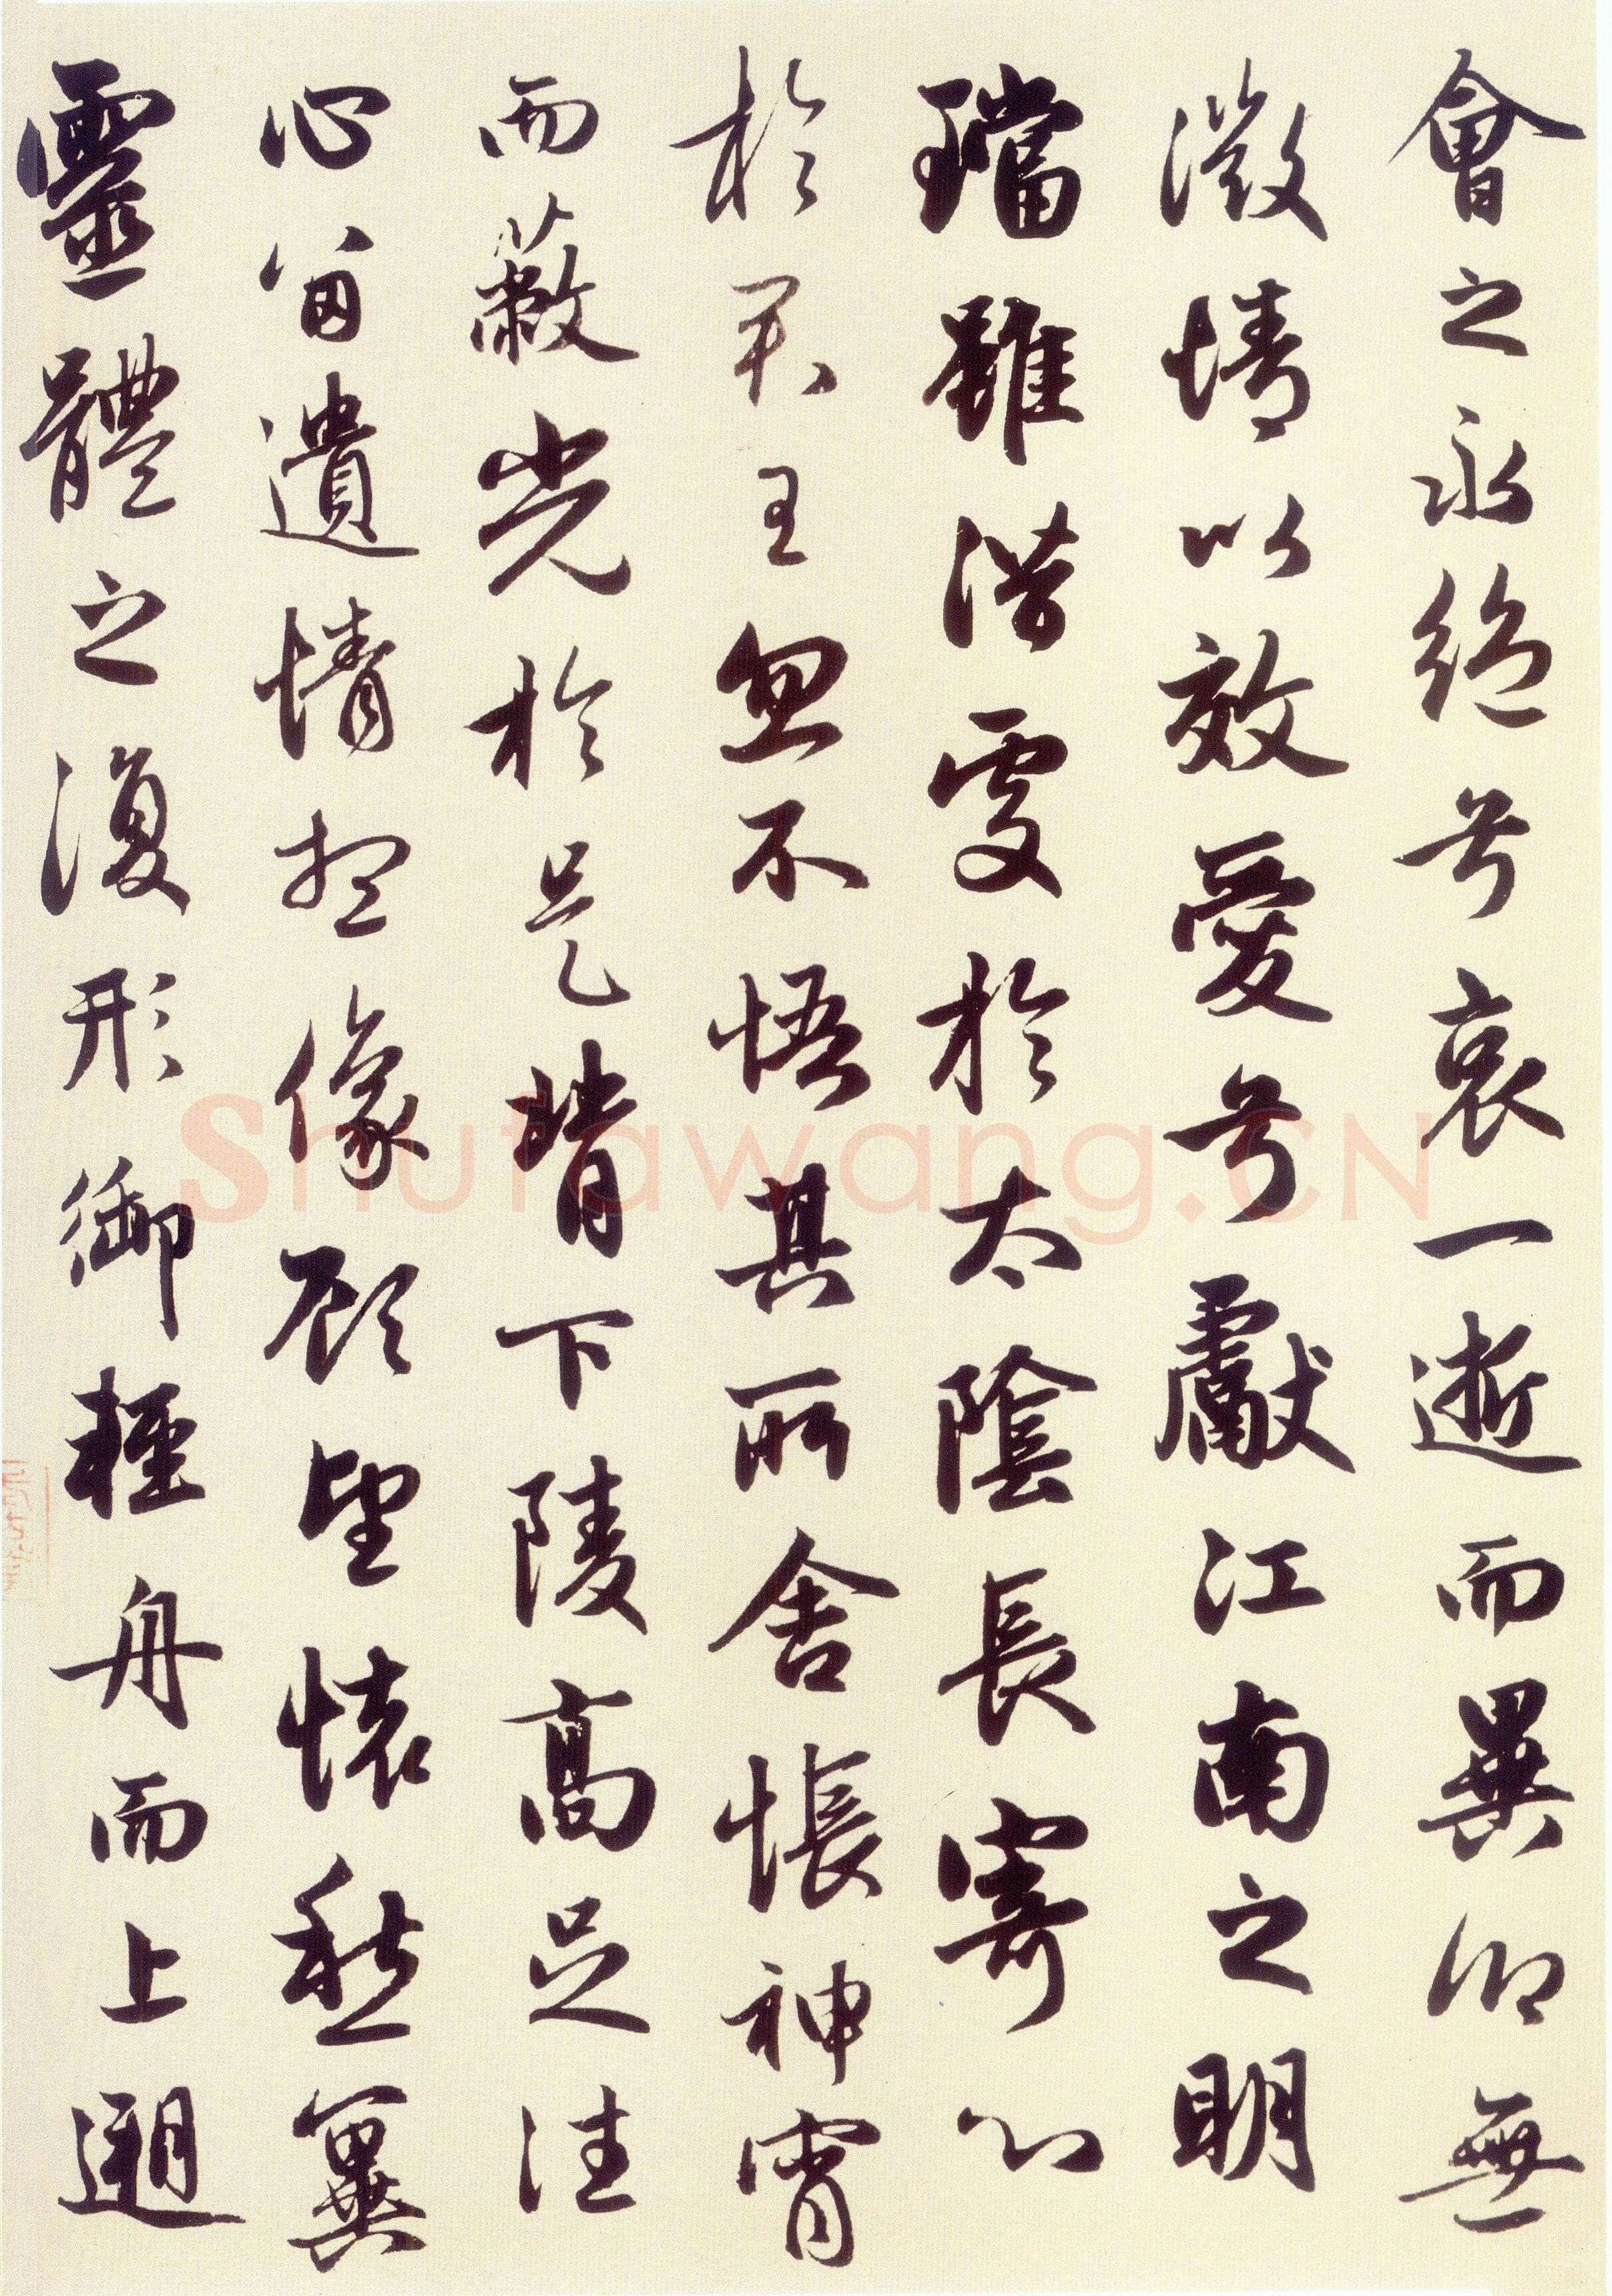 會之永絶兮哀一逝而異鄉無
微情以效愛兮獻江南之明
璫雖潛處於太陰長寄心
於君王忽不悟其所舍悵神宵
而蔽光於是背下陵高足往
心留遺情想像顧望懷愁冀
靈體之復形御輕舟而上遡
Shufawang.CN